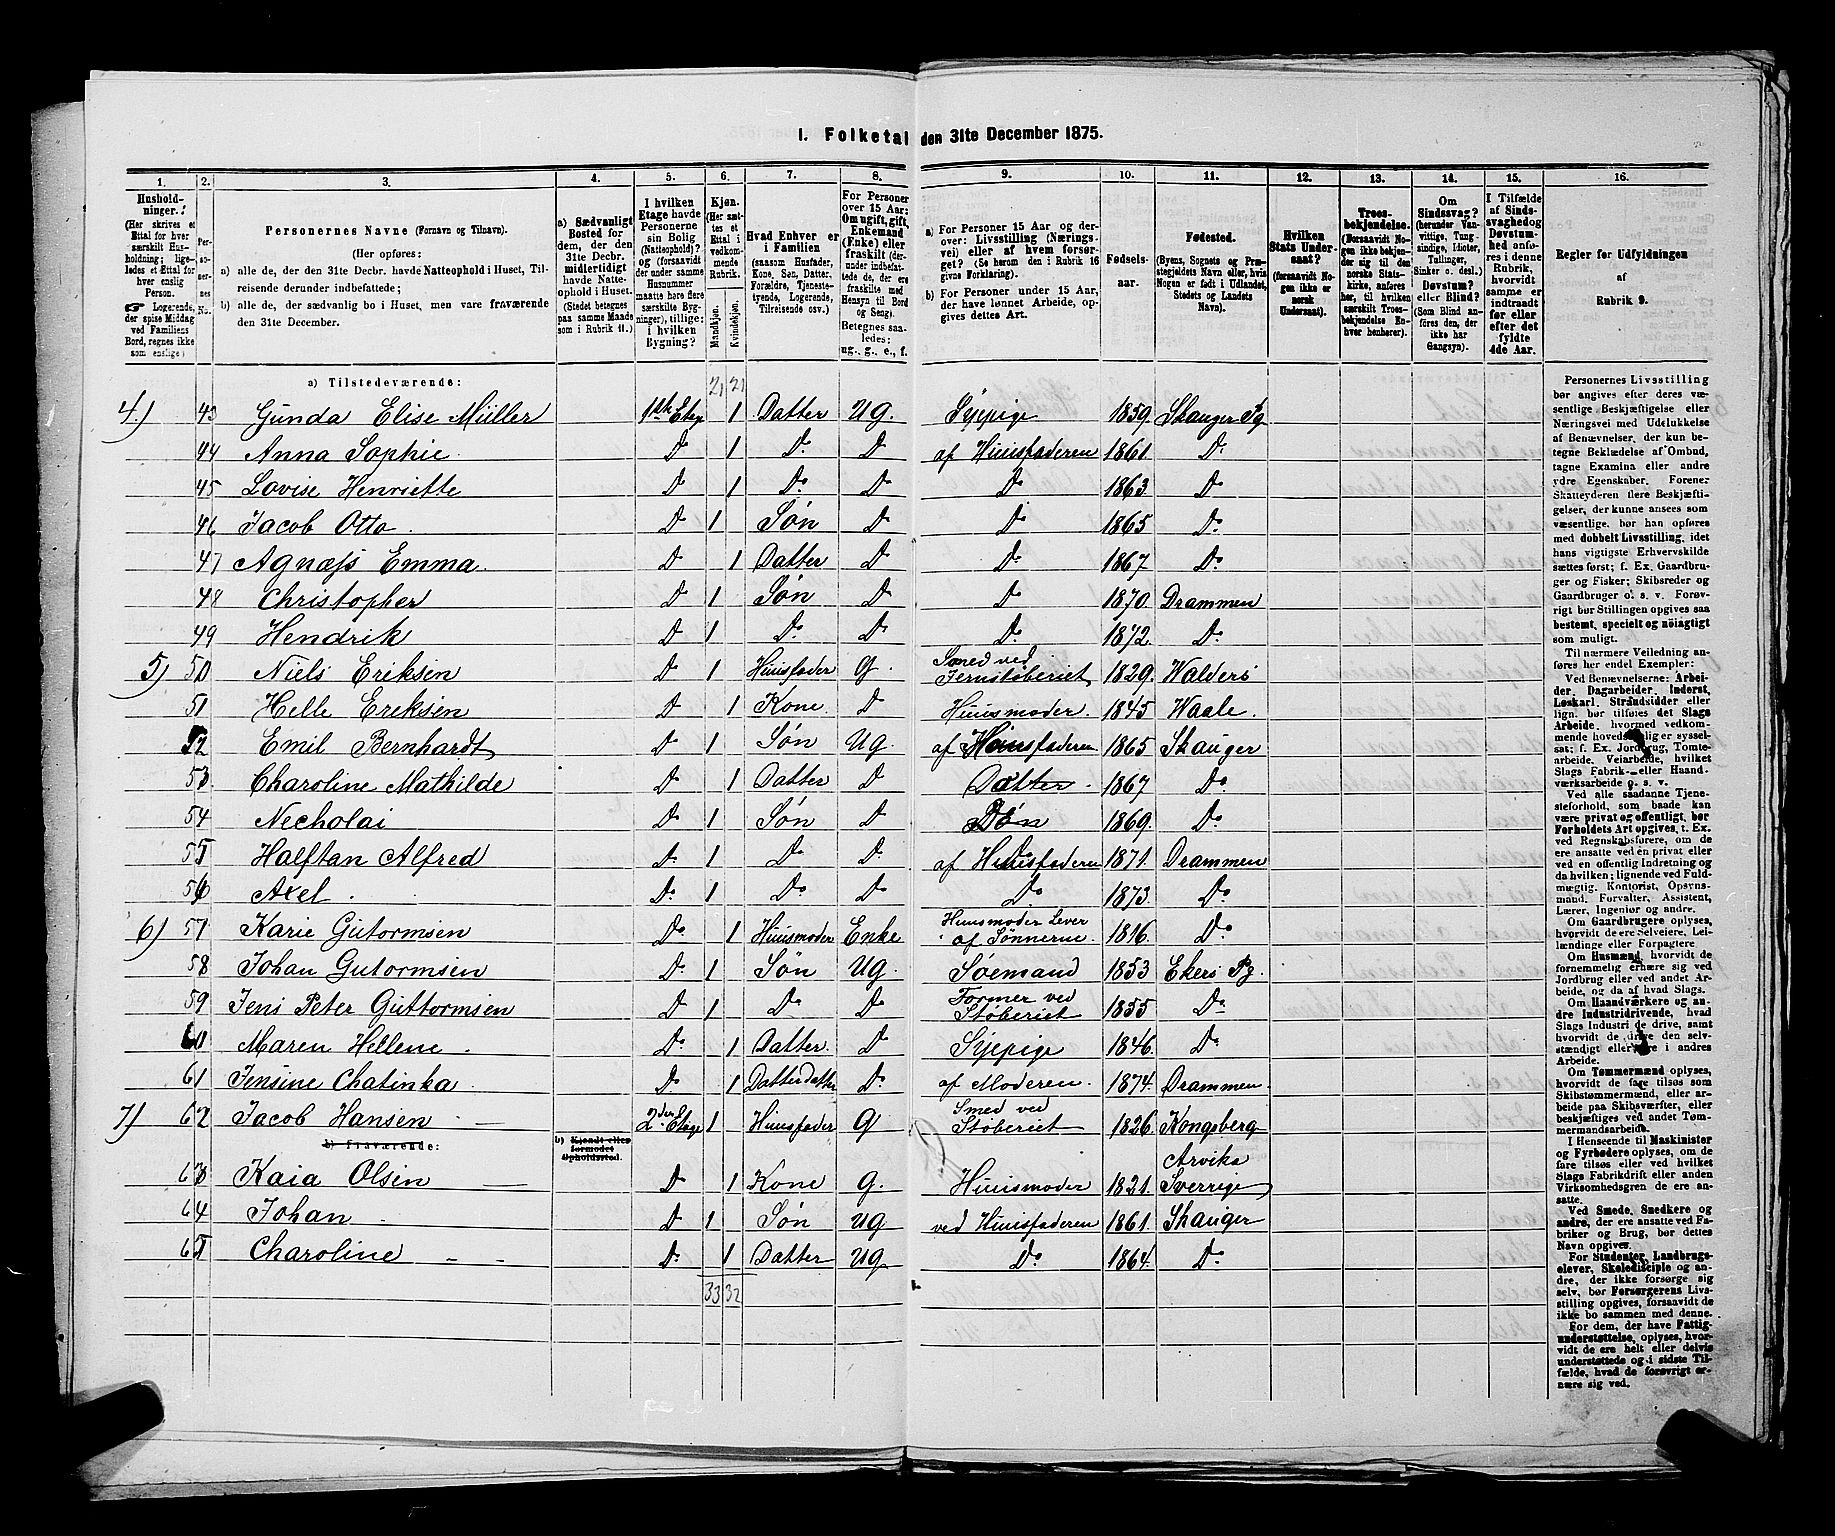 I. Folketal den 31te December 1875.
1. 2. 3. 4. 5. 6. 7. 8. 9. 10. 11. 12. 13. 14. 15. 16.
Husholdninger.
(Her skrives et Ettal for hver særskilt Husholdning; ligeledes et Ettal for hver enslig Person.
☞ Logerende, der spise Middag ved Familiens Bord, regnes ikke som enslige)
Personernes No.
Personernes Navne (Fornavn og Tilnavn).
(Her opføres:
a) alle de, der den 31te Decbr. havde Natteophold i Huset, Tilreisende derunder indbefattede;
b) alle de, der sædvanlig bo i Huset, men vare fraværende den 31te December.
a) Sædvanligt Bosted for dem, der den 31te Decbr. midlertidigt havde Natteophold i Huset. (Stedet betegnes paa samme Maade som i Rubrik 11.)
I hvilken Etage havde Personerne sin Bolig (Natteophold)? og (forsaavidt der under samme Husnummer maatte høre flere særskilte Bygninger), tillige: i hvilken Bygning?
Kjøn. (Her sættes et Ettal i vedkommende Rubrik.
Mandkjøn. Kvindekjøn.
Hvad Enhver er i Familien
(saasom Husfader, Kone, Søn, Datter, Forældre, Tjenestetyende, Logerende, Tilreisende osv.)
For Personer over 15 Aar: Om ugift, gift, Enkemand (Enke) eller fraskilt (derunder indbefattede de, der ere fraskilte med Hensyn til Bord og Seng).
Betegnes saaledes: ug., g., e., f.
a) For Personer 15 Aar og derover: Livsstilling (Næringsvei) eller af hvem forsørget? (Se herom den i Rubrik 16 givne Forklaring).
b) For Personer under 15 Aar, der have lønnet Arbeide, opgives dettes Art.
Fødselsaar.
Fødested.
(Byens, Sognets og Præstegjeldets Navn eller, hvis Nogen er født i Udlandet, Stedets og Landets Navn).
Hvilken Stats Undersaat?
(forsaavidt Nogen ikke er norsk Undersaat).
Troesbekjendelse.
(Forsaavidt Nogen ikke bekjender sig til den norske Statskirke, anføres her, til hvilken særskilt Troesbekjendelse Enhver henhører).
Om Sindssvag? (herunder Vanvittige, Tungsindige, Idioter, Tullinger, Sinker o. desl.) Døvstum? eller Blind? (Som Blind anføres den, der ikke har Gangsyn).
I Tilfælde af Sindssvaghed og Døvstumhed anføres i denne Rubrik, hvorvidt samme er indtraadt før eller efter det fyldte 4de Aar.
Regler for Udfyldningen af Rubrik 9.
a) Tilstedeværende: 21 21
4.) 43 Gunda Elise Müller 1ste Etag 1 Datter Ug. Sypige 1859. Skauger Pg
44 Anna Sophie Do 1 Do. Do af Huusfaderen 1861. Do.
45 Lovise Henriette Do 1 Do. Do Do 1863. Do
46 Jacob Otto. Do 1 Søn Do Do 1865 Do.
47 Agnæss Emma. Do 1 Datter Do Do. 1867 Do.
48 Christopher Do 1 Søn Do Do 1870. Drammen
49 Hendrik Do 1 Do. Do Do. 1872. Do.
5) 50 Niels Eriksen Do 1 Huusfader g. Smed ved Jernstøberiet 1829. Walders
51 Helle Eriksen Do 1 Kone. Do Huusmoder. 1845 Waale.
52 Emil Bernhardt Do 1 Søn Ug. af Huusfaderen 1865 Skauger
53. Charoline Mathilde Do 1 Datter Do Datter. 1867 Do.
54 Necholai Do 1 Søn Do Søn 1869. Do.
55 Halftan Alfred Do. 1 Do Do. af Huusfaderen 1871. Drammen
56 Axel. Do. 1 Do. Do Do. 1873. Do
6) 57 Karie Gutormsen Do. 1 Huusmoder Enke Huusmoder Lever af Sønnerne. 1816. Do.
58 Johan Gutormsen Do. 1 Søn Ug. Søemand 1853 Ekers Pg.
59 Jens Peter Guttormsen Do 1 Do Do Former ved Støberiet 1855 Do.
60 Maren Hellene. Do. 1 Datter. Do Sypige 1846. Do.
61 Jensine Chatinka. Do. 1 Datterdatter Do. af Moderen. 1874. Drammen.
7) 62 Jacob Hansen 2den Etage 1 Huusfader g Smed ved Støberiet 1826. Kongsberg
b) Fraværende: b) Kjendt eller formodet Opholdssted.
63 Kaia Olsen Do 1 Kone g. Huusmoder 1821. Arvika Sverrige
64 Johan. Do 1 Søn ug ved Huusfaderen 1861. Skauger
65 Charoline Do. 1 Datter ug Do. 1864. Do.
33 32
Personernes Livsstilling
bør angives efter deres væ-
sentlige Beskjæftigelse eller
Næringsvei med Udelukkelse
af Benævnelser, der kun be-
tegne Beklædelse af Ombud,
tagne Examina eller andre
ydre Egenskaber. Forener
Skatteyderen flere Beskjæfti-
gelser, der kunne ansees som
væsentlige, bør han opføres
med dobbelt Livsstilling, idet
hans vigtigste Erhvervskilde
sættes først; f. Ex. Gaardbru-
ger og Fisker; Skibsreder og
Gaardbruger o. s. v. Forøv-
rigt bør Stillingen opgives saa
bestemt, specielt og nøiagtigt
som muligt.
Til nærmere Veiledning an-
føres her endel Exempler:
Ved Benævnelserne: Arbei-
der, Dagarbeider, Inderst,
Løskarl, Strandsidder eller
lign. bør tilføies det Slags
Arbeide, hvormed vedkom-
mende hovedsagelig er syssel-
sat; f. Ex. Jordbrug, Tomte-
arbeide, Veiarbeide, hvilket
Slags Fabrik- eller Haand-
værksarbeide o. s. v.
Ved alle saadanne Tjene-
steforhold, som baade kan
være privat og offentligt, bør
Forholdets Art opgives, t. Ex.
ved Regnskabsførere, om de
ere ansatte ved en privat eller
ved en offentlig Indretning og
da hvilken; lignende ved Fuld-
mægtig, Kontorist, Opsyns-
mand, Forvalter, Assistent,
Lærer, Ingeniør og andre.
Om Gaardbrugere oplyses,
hvorvidt de ere Selveiere, Lei-
lændinge eller Forpagtere
Om Husmænd, hvorvidt de
fornemmelig ernære sig ved
Jordbrug eller ved andet Ar-
beide, og da af hvad Slags.
Om Haandværkere og an-
dre Industridrivende, hvad
Slags Industri de drive, samt
hvorvidt de drive den selv-
stændigt eller ere i andres
Arbeide.
Om Tømmermænd oplyses,
hvorvidt de fare tilsøs som
Skibstømmermænd, eller ar-
beide paa Skibsværfter, eller
beskjæftiges ved andet Tøm-
mermandsarbeide.
I Henseende til Maskinister
og Fyrbødere oplyses, om de
fare tilsøs eller ved hvilket
Slags Fabrikdrift eller anden
Virksomhedsgren de ere an-
satte.
Ved Smede, Snedkere og
andre, der ere ansatte ved Fa-
briker og Brug, bør dettes
Navn opgives.
For Studenter, Landbrugs-
elever, Skoledisciple og an-
dre, der ikke forsørge sig
selv, bør Forsørgerens Livs-
stilling opgives, forsaavidt de
ikke bo sammen med denne.
For dem, der have Fattig-
understøttelse, oplyses, hvor-
vidt de ere helt eller delvis
understøttede og i sidste Til-
fælde, hvad de forøvrigt er-
nære sig ved.